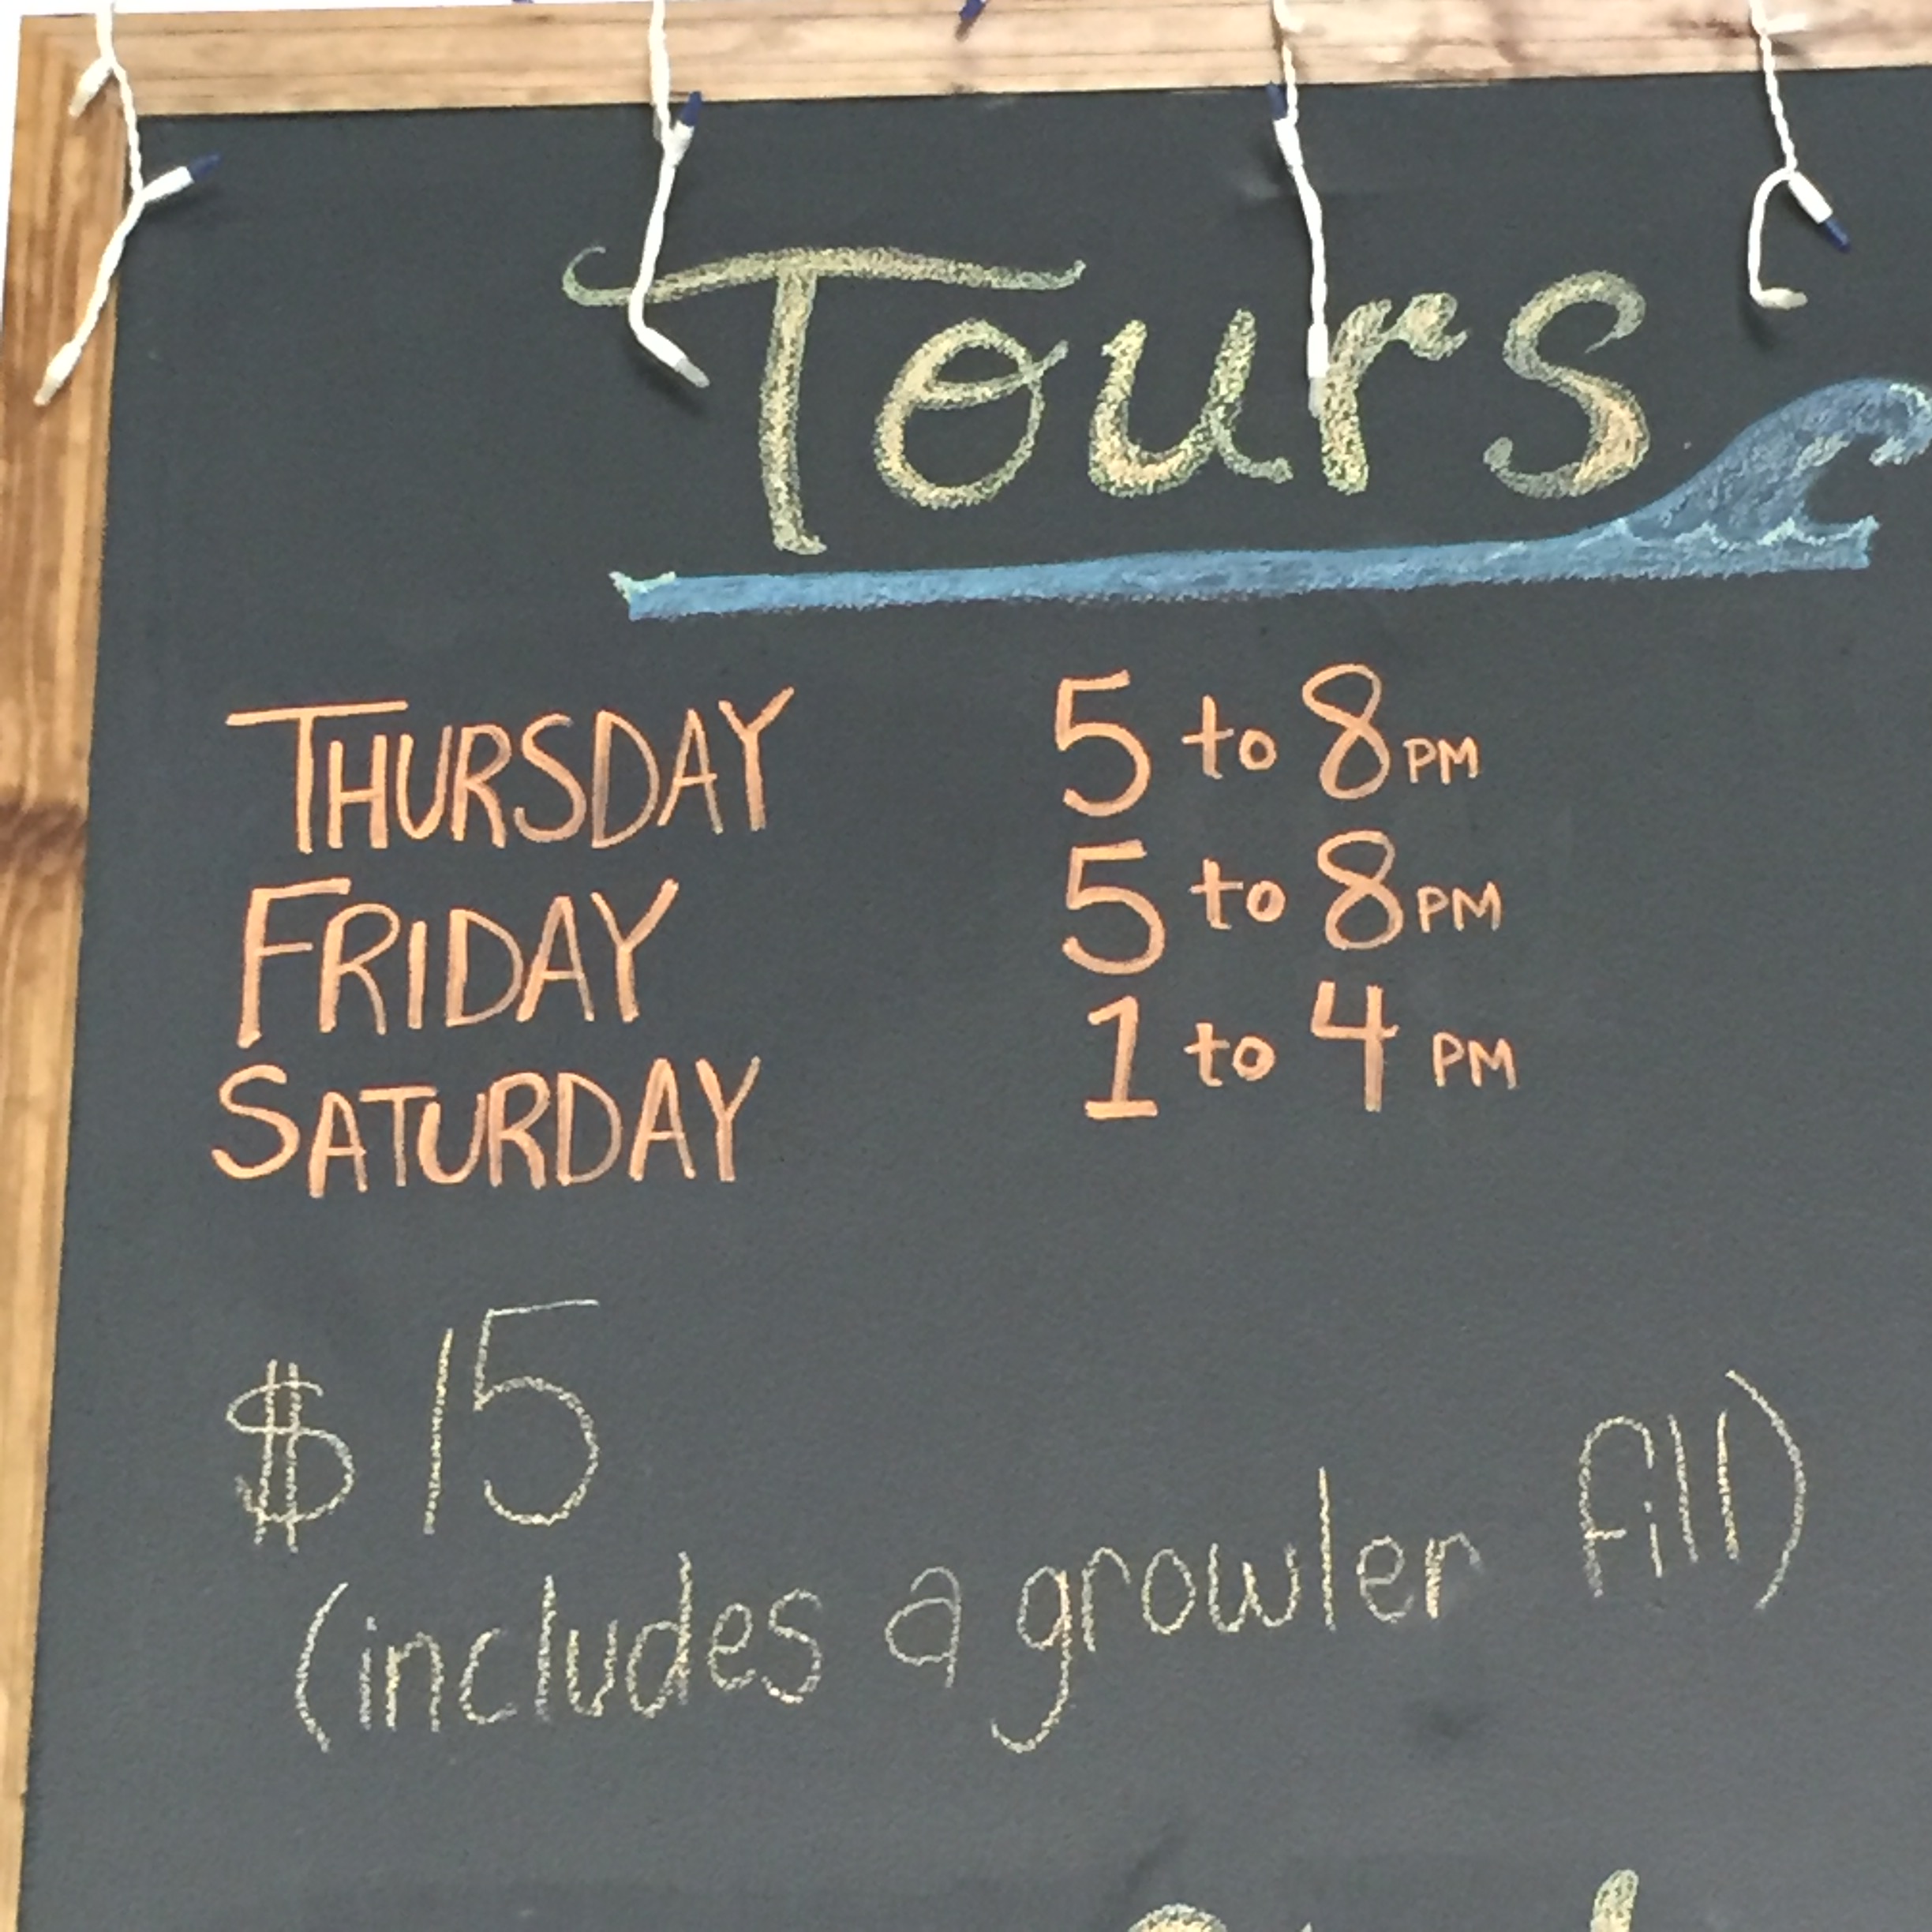 Tours
THURSDAY 5 to 8 PM
FRIDAY 5 to 8 PM
SATURDAY 1 to 4 PM
$15
(includes a growler fill)